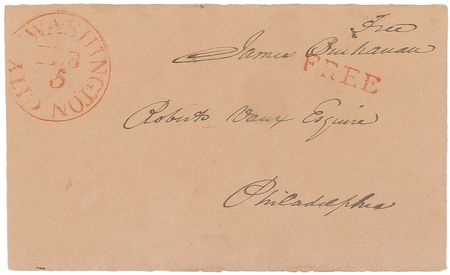 Free
James Buchanan
FREE
WASHINGTON CITY
5
Roberts Vaux Esquire
Philadelphia